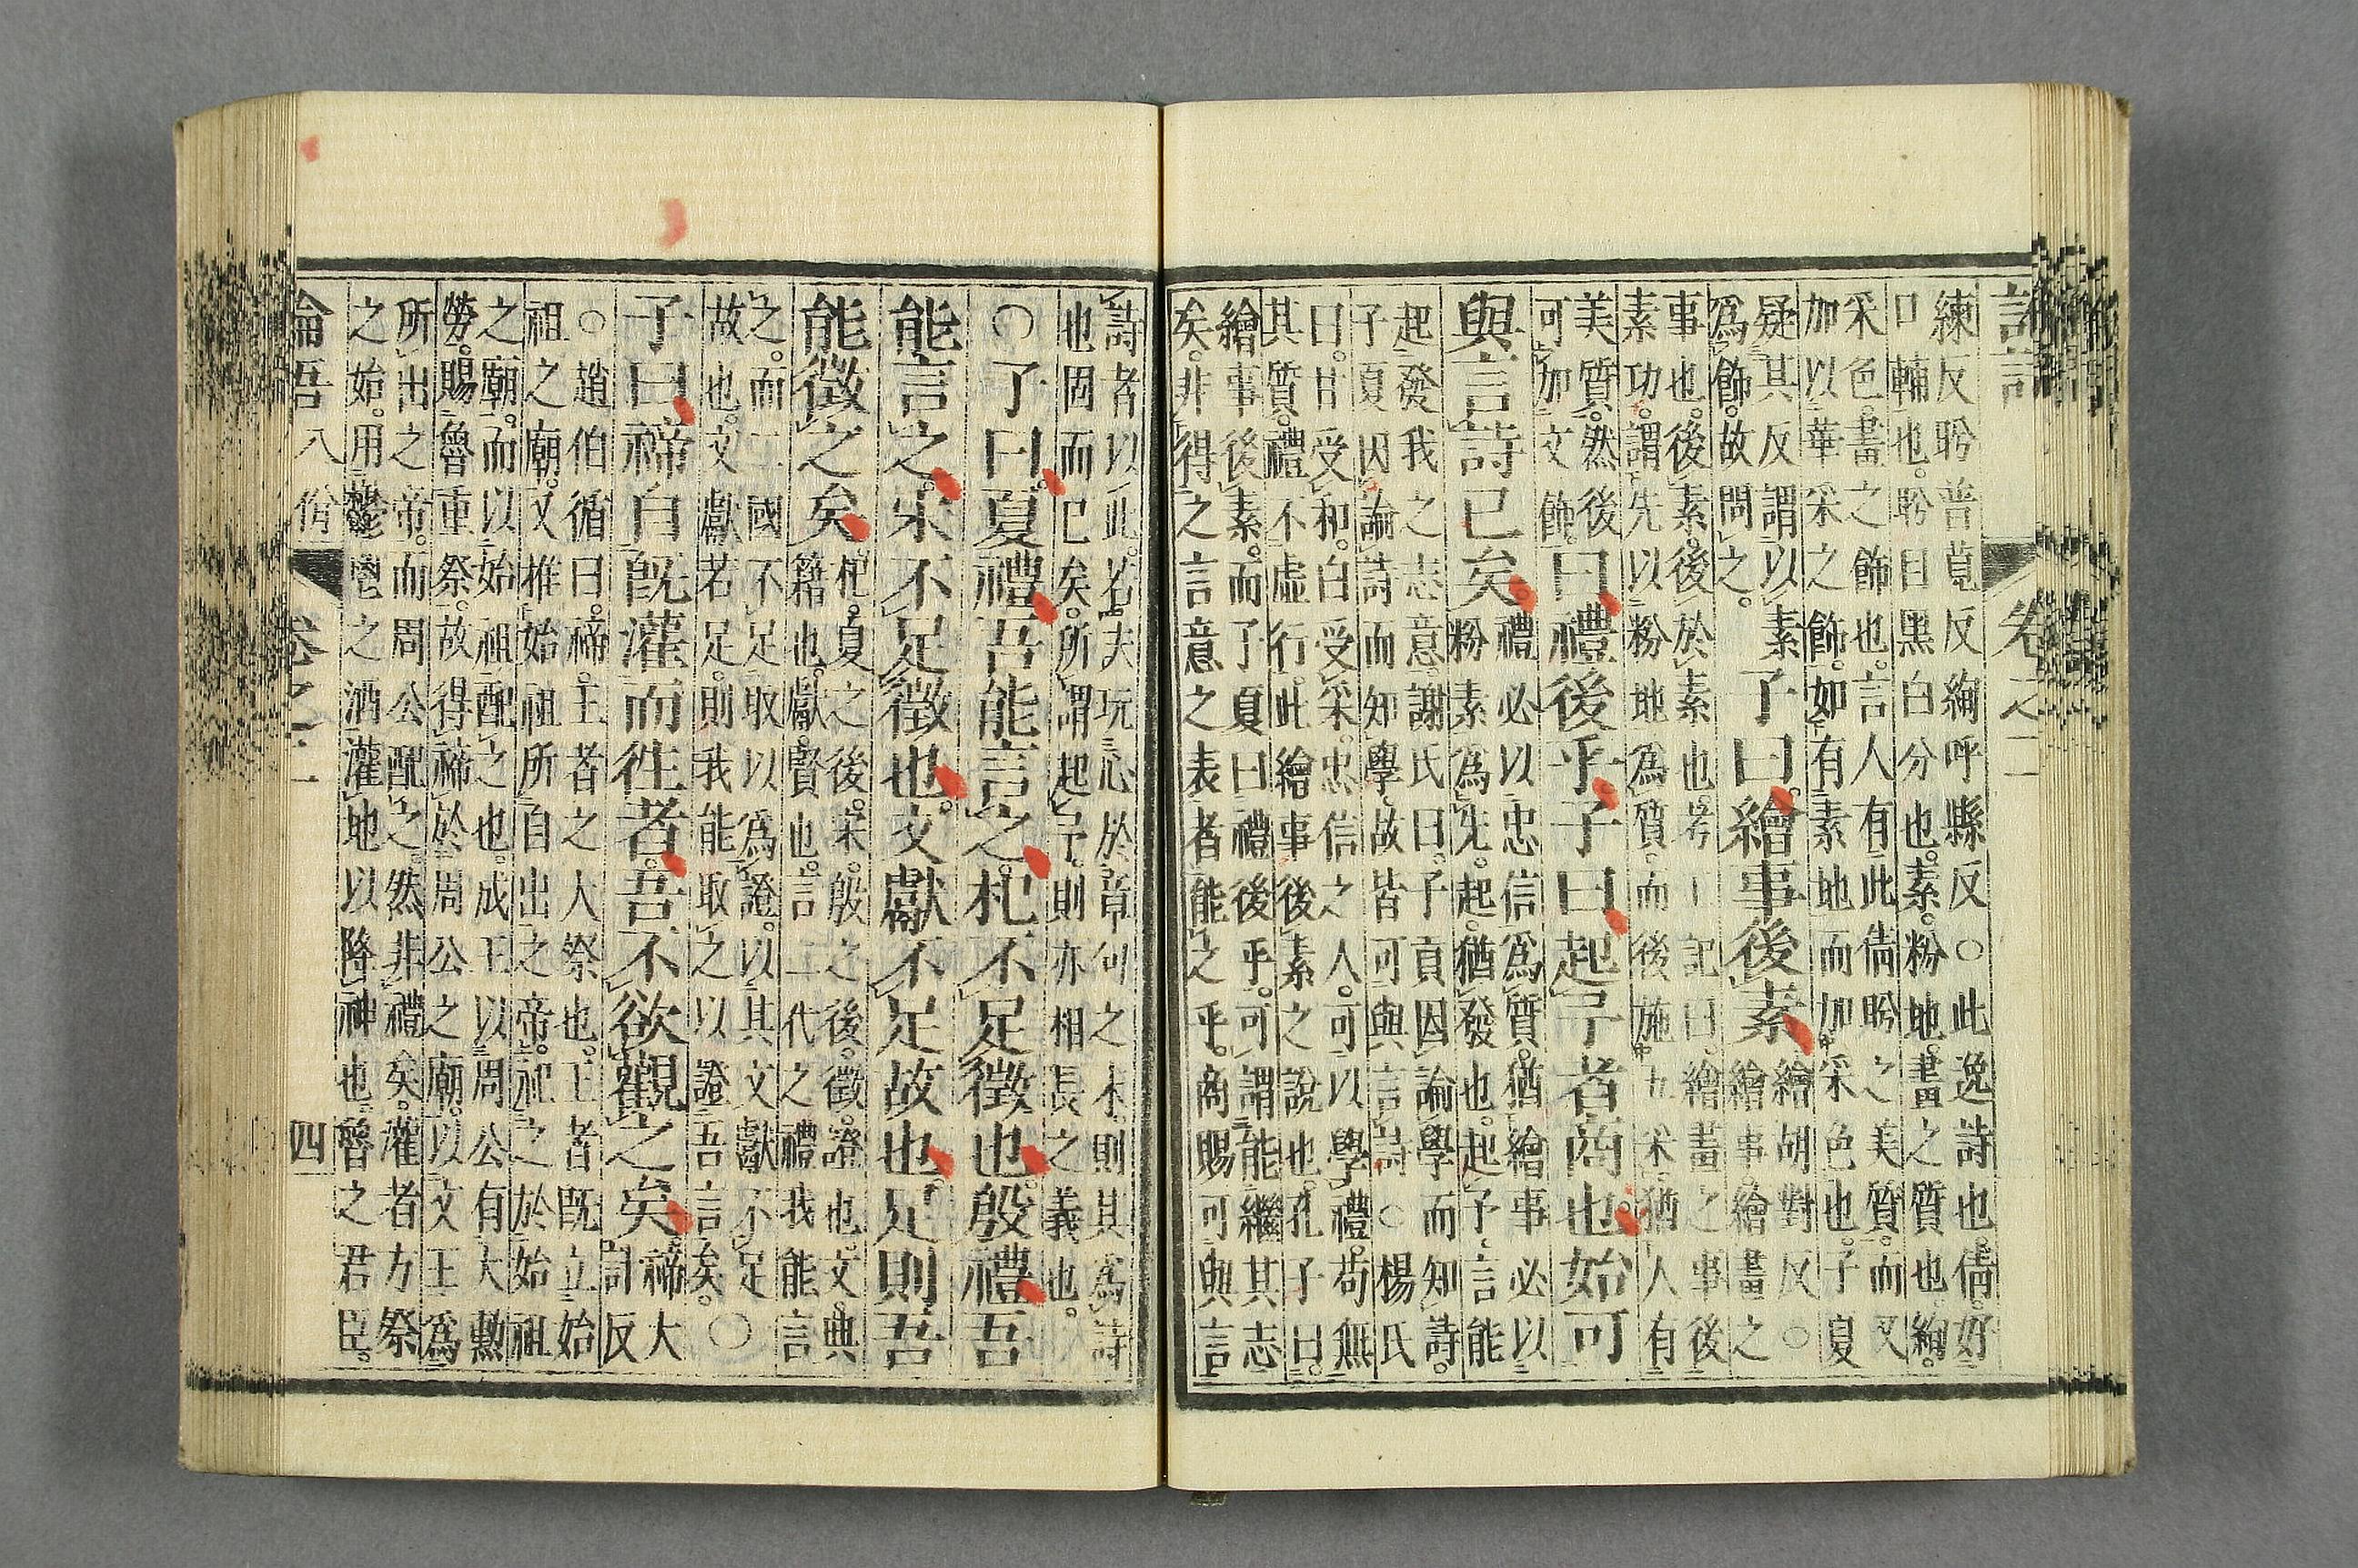 論語 卷之二
練反盼普莧反絢呼縣反○此逸詩也。倩。好
口輔也。盼目黑白分也。素。粉地。畫之質也。絢。
采色。畫之飾也。言人有此倩盼之美質。而又
加以華采之飾。如有素地而加采色也。子夏
疑其反謂以素
爲飾。故問之。
子曰繪事後素
繪胡對反○
繪事。繪畫之
事也。後素。後於素也。考工記曰。繪畫之事後
素功。謂先以粉地爲質。而後施五采。猶人有
美質。然後
可加文飾。
曰禮後乎子曰起予者商也始可
與言詩已矣
禮必以忠信爲質。猶繪事必以
粉素爲先。起。猶發也。起予。言能
起發我之志意。謝氏曰。子貢因論學而知詩。
子夏因論詩而知學。故皆可與言詩。○楊氏
曰。甘受和。白受采。忠信之人。可以學禮。苟無
其質。禮不虛行。此繪事後素之說也。孔子曰。
繪事後素。而子夏曰禮後乎。可謂能繼其志
矣。非得之言意之表者能之乎。商賜可與言
詩者以此。若夫玩心於章句之末。則其爲詩
也固而已矣。所謂起予。則亦相長之義也。
○子曰夏禮吾能言之杞不足徵也殷禮吾
能言之宋不足徵也文獻不足故也足則吾
能徵之矣
杞。夏之後。宋。殷之後。徵。證也。文。典
籍也。獻。賢也。言二代之禮我能言
之。而二國不足取以爲證。以其文獻不足
故也。文獻若足。則我能取之以證吾言矣。○
子曰禘自既灌而往者吾不欲觀之矣
禘大
計反
○趙伯循曰。禘。王者之大祭也。王者既立始
祖之廟。又推始祖所自出之帝。祀之於始祖
之廟。而以始祖配之也。成王以周公有大勳
勞。賜魯重祭。故得禘於周公之廟。以文王爲
所出之帝。而周公配之。然非禮矣。灌者方祭
之始。用鬱鬯之酒灌地以降神也。魯之君臣。
論吾八佾 卷之二 四